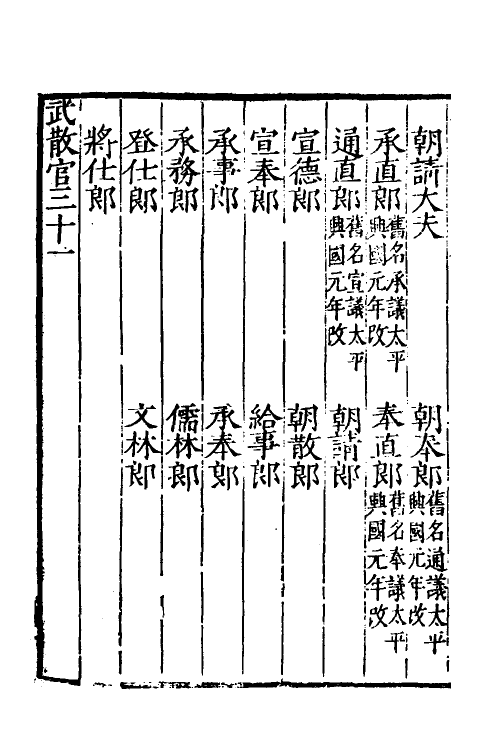 朝請大夫　朝奉郎舊名通議太平興國元年改
承直郎舊名承議太平興國元年改　奉直郎舊名奉議太平興國元年改
通直郎舊名宣議太平興國元年改　朝請郎
宣德郎　朝散郎
宣奉郎　給事郎
承事郎　承奉郎
承務郎　儒林郎
登仕郎　文林郎
將仕郎
武散官三十一